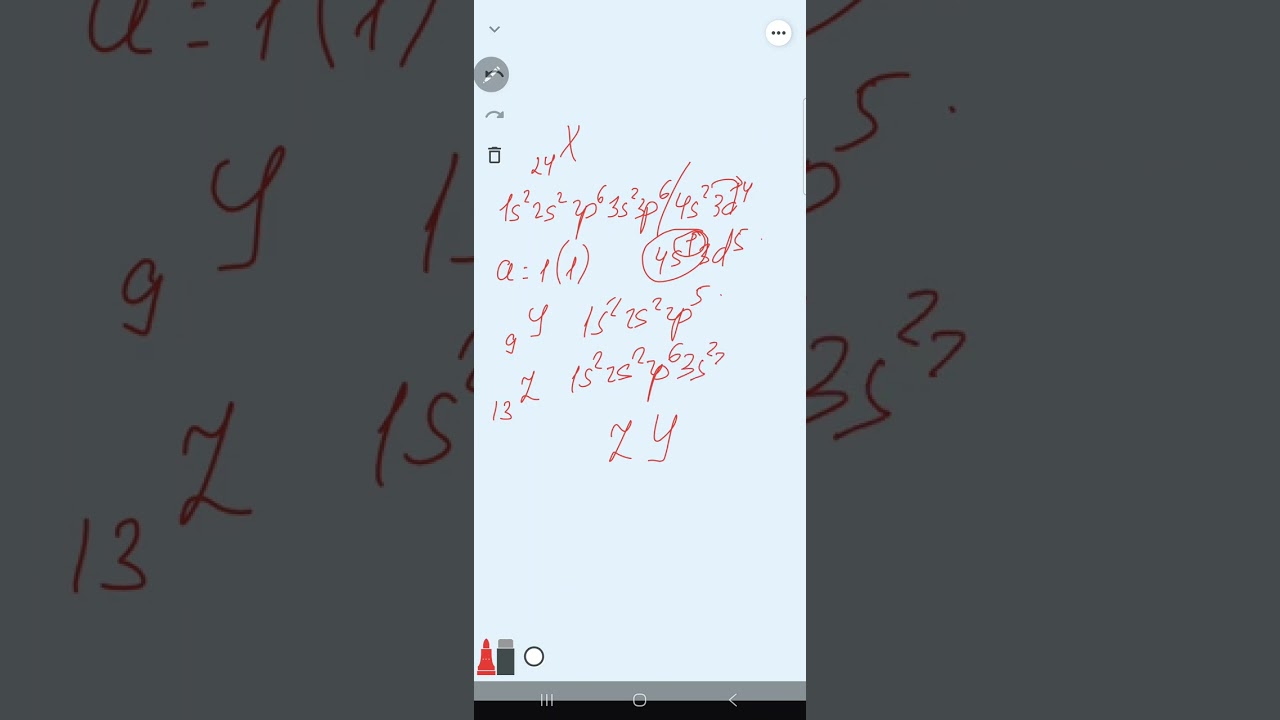 ₂₄X
1s²2s²2p⁶3s²3p⁶/4s²3d⁴
4s¹3d⁵
a=1(1)
₉Y 1s²2s²2p⁵
₁₃Z 1s²2s²2p⁶3s²
Z Y